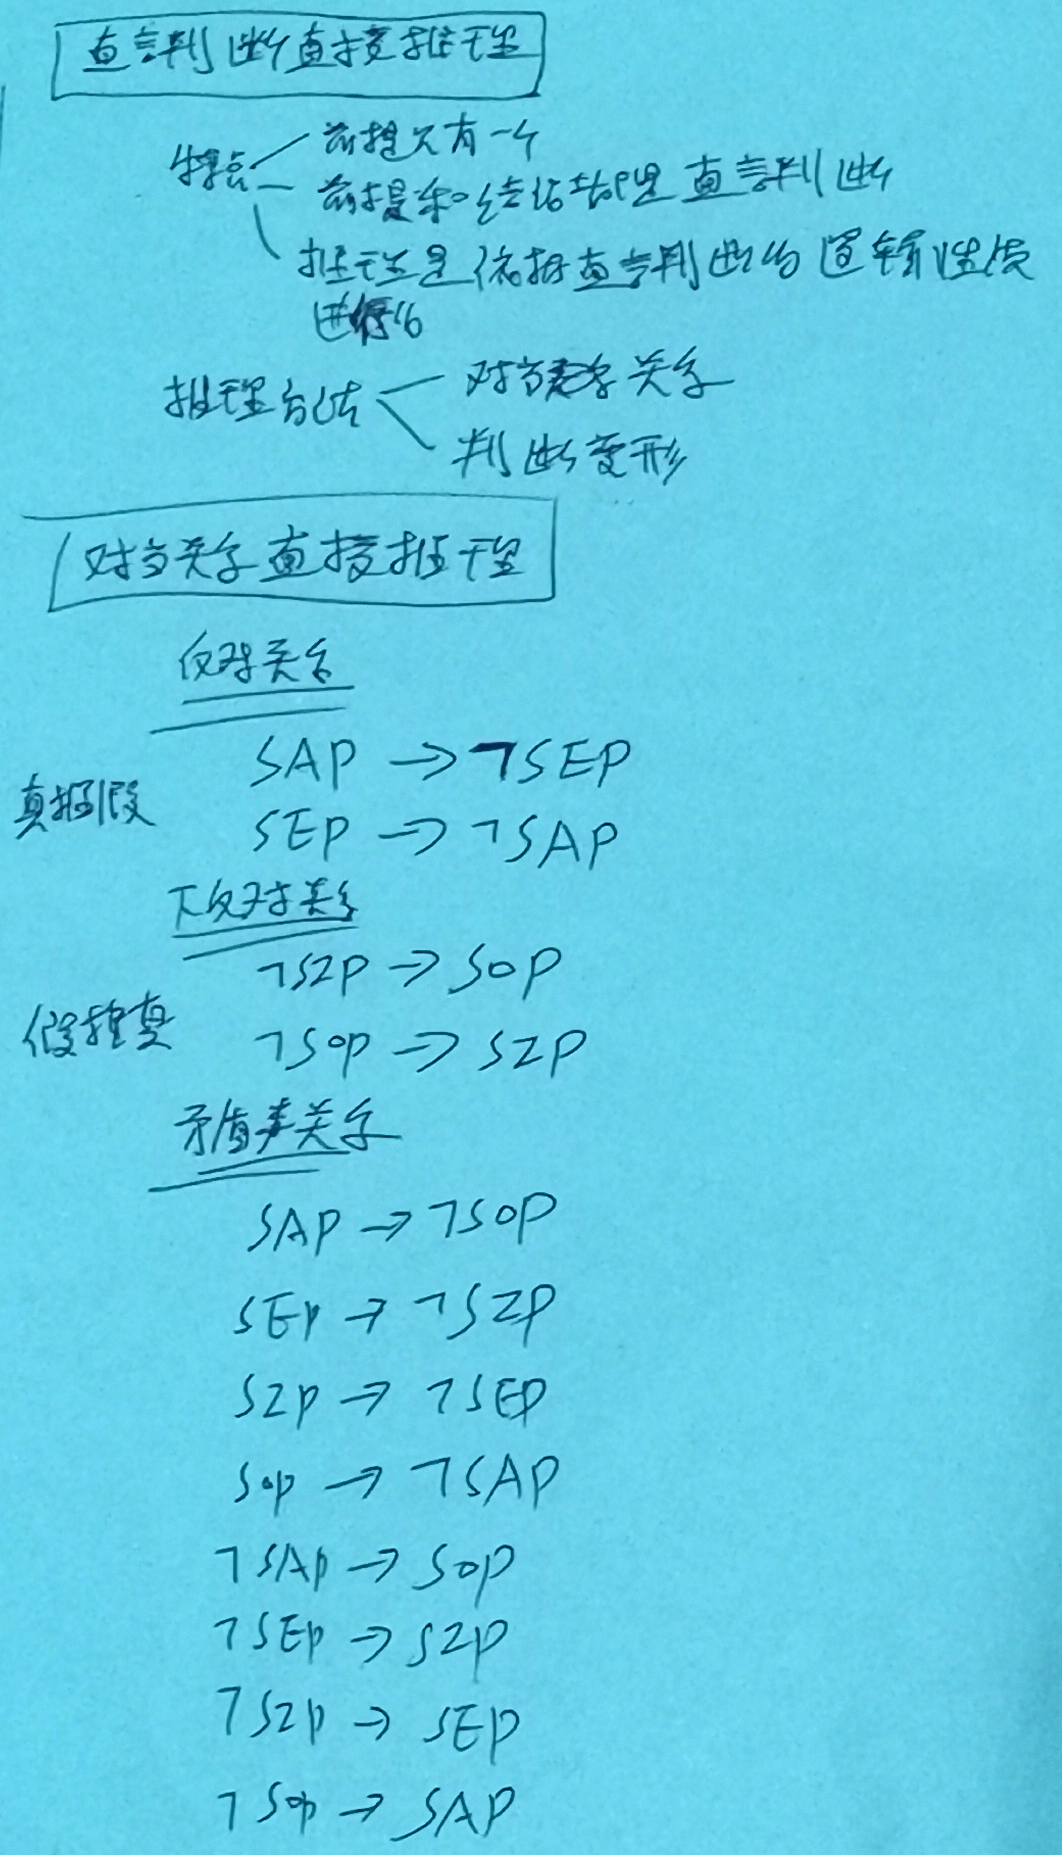 直言判断直接推理
特点 前提只有一个
前提和结论都是直言判断
推理是依据直言判断的逻辑性质
进行的
推理方法 对当关系
判断变形
对当关系直接推理
反对关系
SAP → ¬SEP
真推假
SEP → ¬SAP
下反对关系
¬SIP → SOP
假推真
¬SOP → SIP
矛盾关系
SAP → ¬SOP
SEP → ¬SIP
SIP → ¬SEP
SOP → ¬SAP
¬SAP → SOP
¬SEP → SIP
¬SIP → SEP
¬SOP → SAP